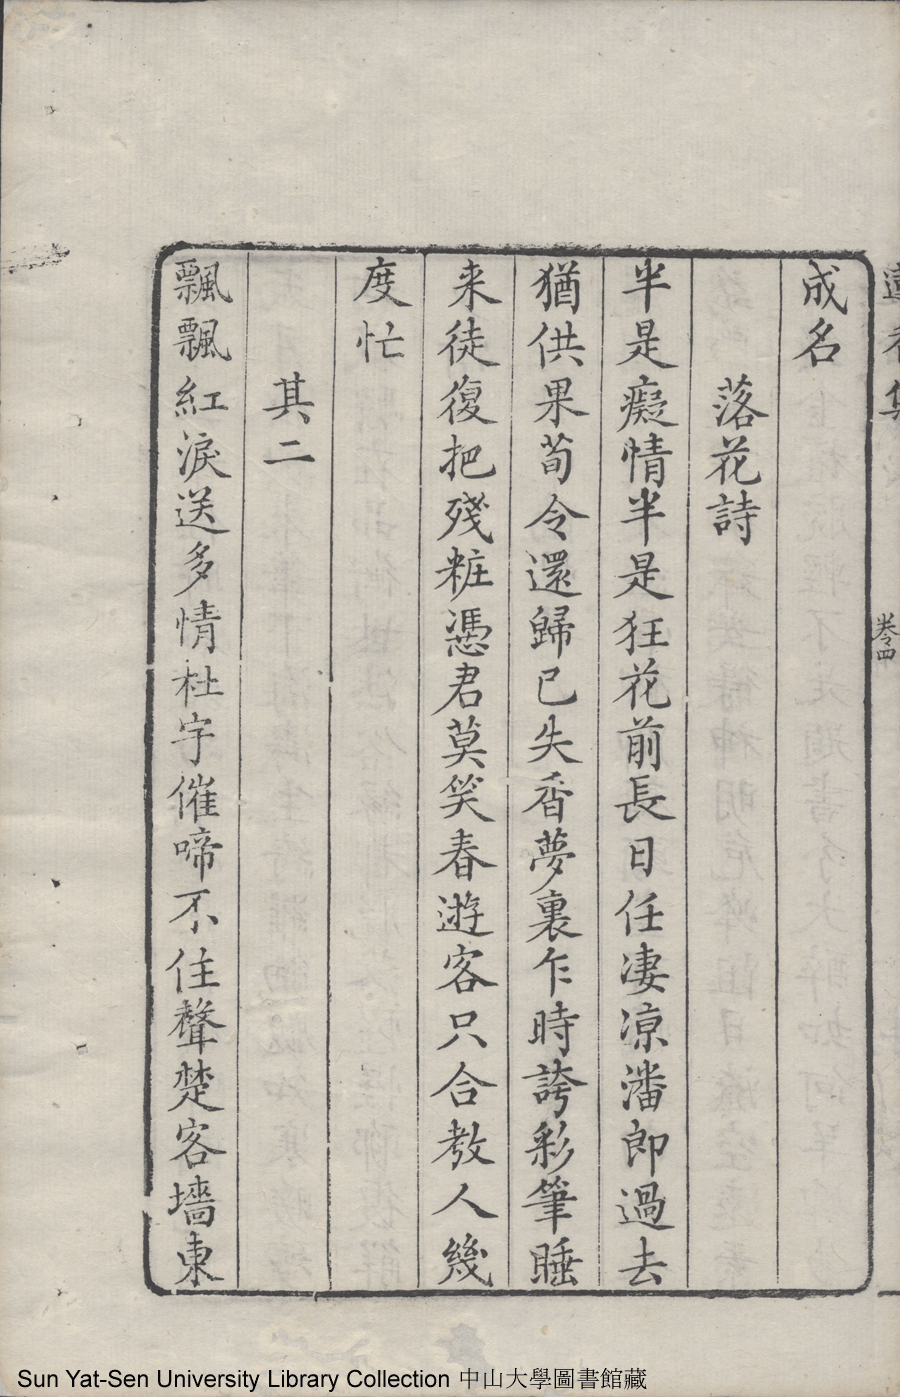 集
卷四
成名
落花詩
半是癡情半是狂花前長日任凄凉潘郎過去
猶供果荀令還歸已失香夢裏乍時誇彩筆睡
来徒復把殘粧憑君莫笑春遊客只合教人幾
度忙
其二
飄飄紅淚送多情杜宇催啼不住聲楚客墻東
Sun Yat-Sen University Library Collection 中山大學圖書館藏